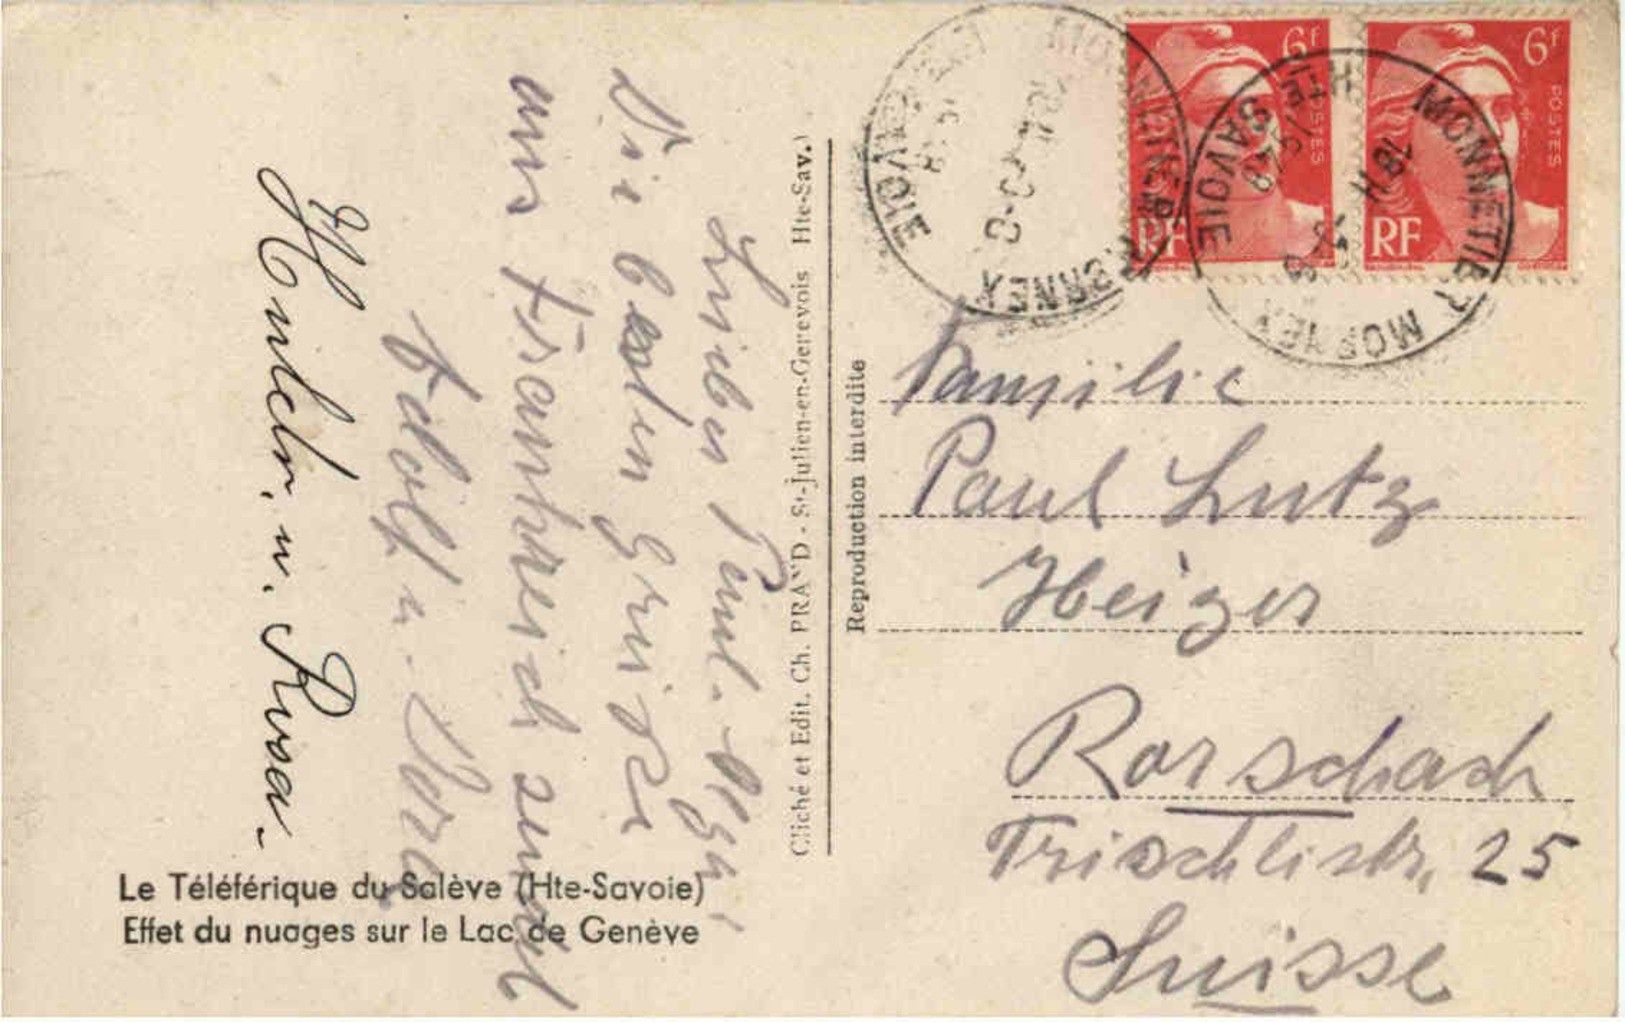 Lieber Paul. Olga!
Die besten Grüsse
aus Frankreich sendet
Adolf u. Dora
H. u. Rosa.
Cliché et Edit. Ch. PRAND - St-Julien-en-Genevois Hte-Sav.)
Reproduction interdite
Le Téléférique du Salève (Hte-Savoie)
Effet du nuages sur le Lac de Genève
6f
POSTES
RF
6f
POSTES
RF
MONNETIER MORNEX
HTE SAVOIE
18 H
MONNETIER MORNEX
HTE SAVOIE
18 H
Familie
Paul Lutz
Heizer
Rorschach
Trischlistr. 25
Suisse